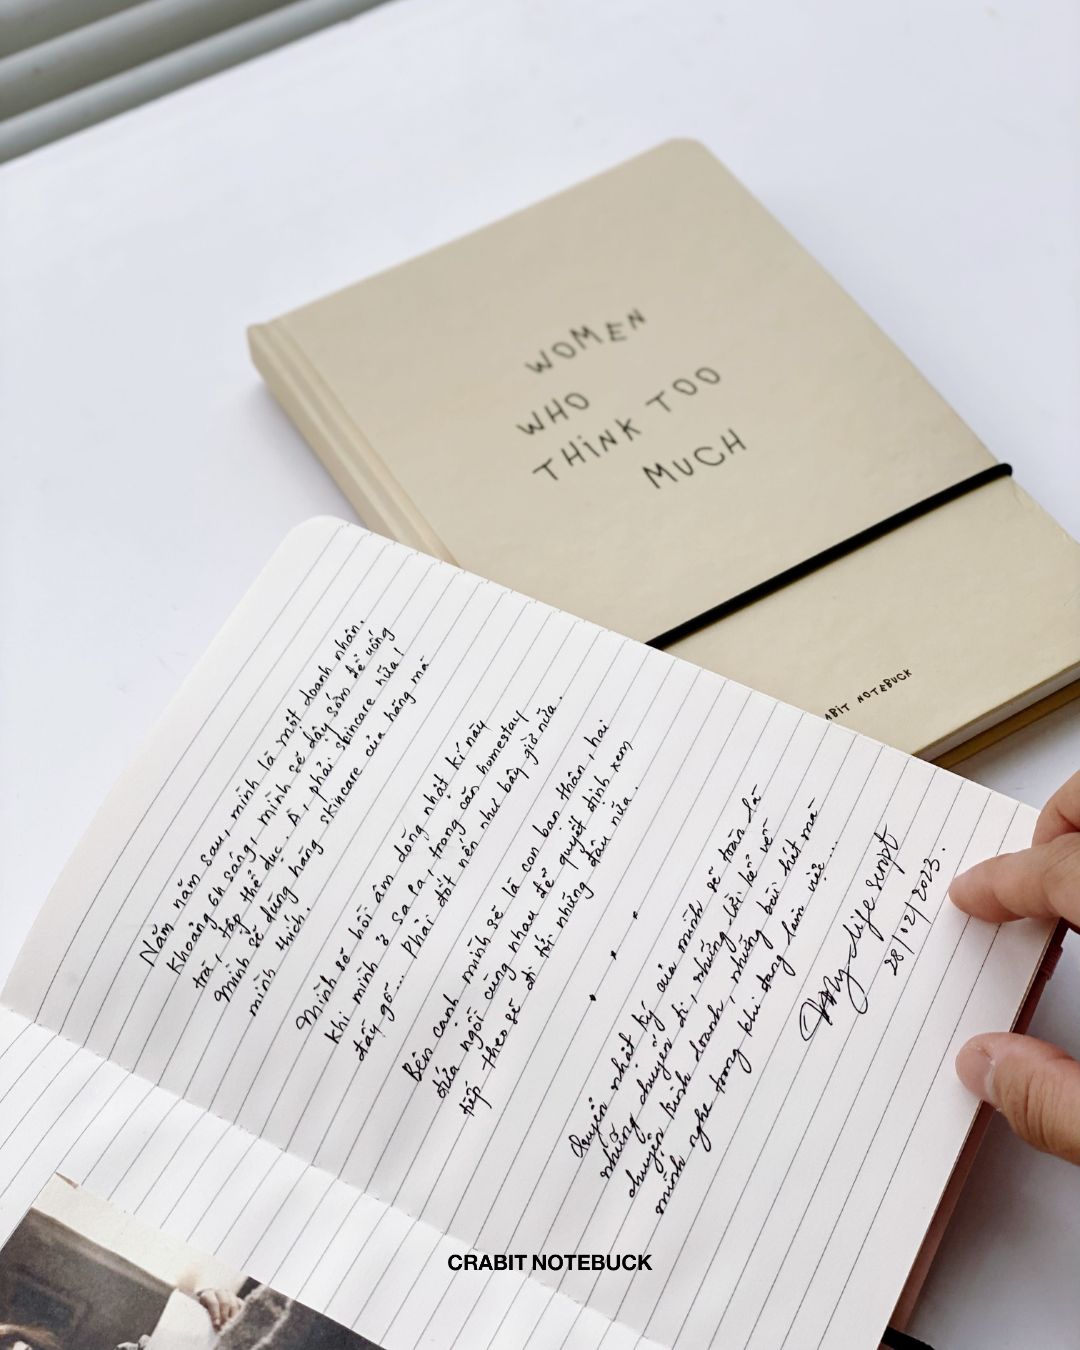 WOMEN
WHO
THINK TOO
MUCH
CRABIT NOTEBUCK
Năm năm sau, mình là một doanh nhân.
Khoảng 6h sáng, mình sẽ dậy sớm để uống
trà, tập thể dục. À, phải skincare nữa!
Mình sẽ dùng hãng skincare của hãng mà
mình thích.
Mình sẽ hồi âm dòng nhật kí này
khi mình ở Sa Pa, trong căn homestay
đầy gỗ... Phải đốt nến như bây giờ nữa.
Bên cạnh mình sẽ là con bạn thân, hai
đứa ngồi cùng nhau để quyết định xem
tiếp theo sẽ đi tới những đâu nữa.
Quyển nhật ký của mình sẽ toàn là
những chuyến đi, những lời kể về
chuyện kinh doanh, những bài hát mà
mình nghe trong khi đang làm việc...
My life script
28/02/2023.
CRABIT NOTEBUCK